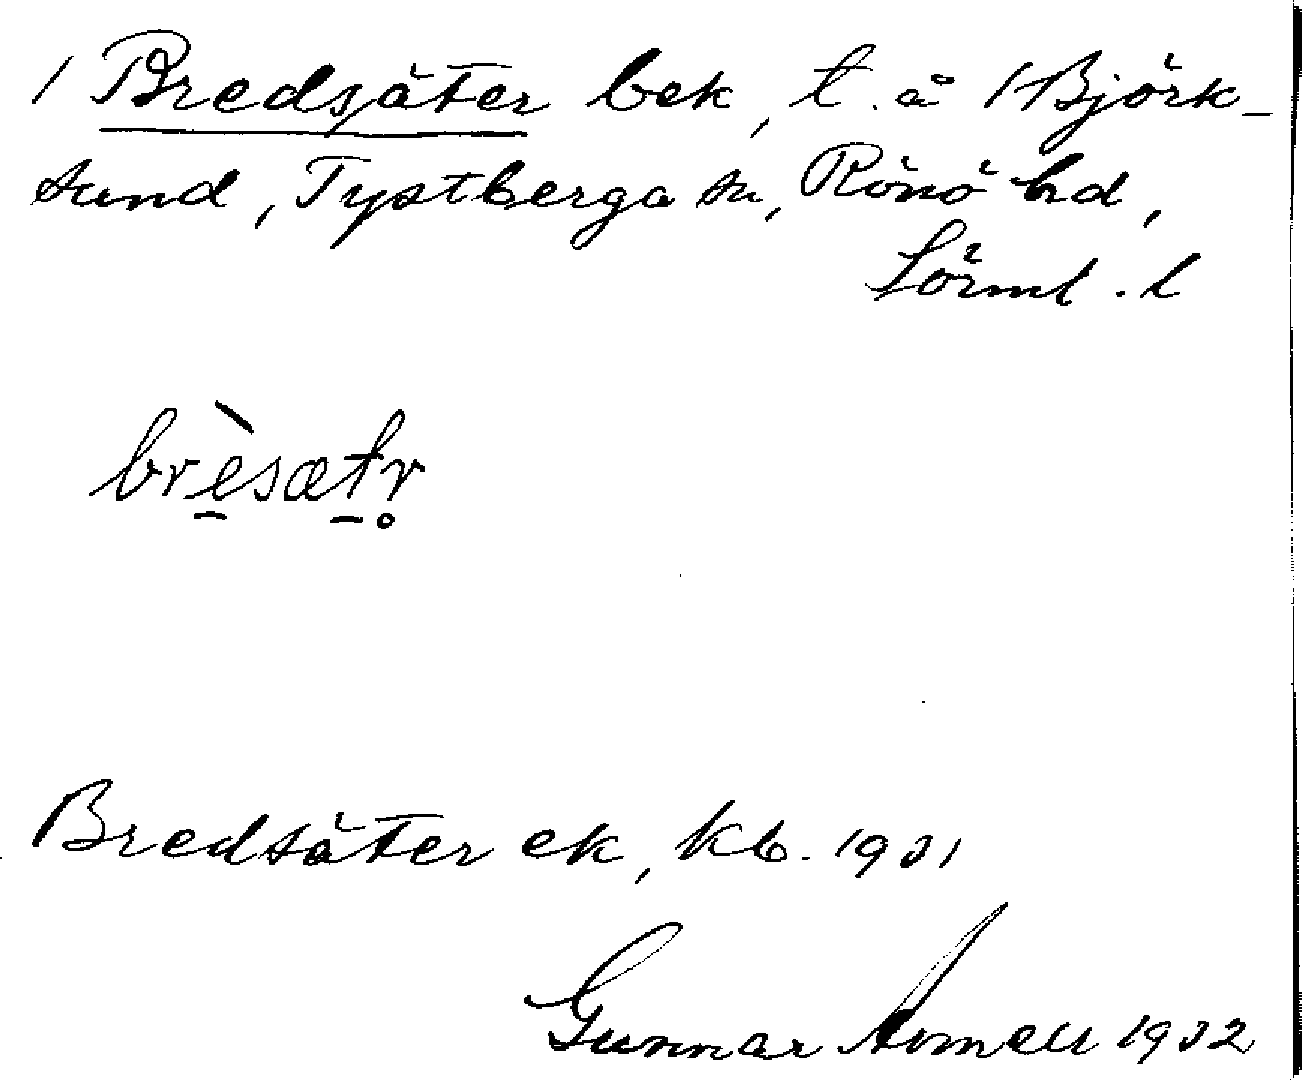 / Bredsäter bek, t. å /Björk-
sund, Tystberga sn, Rönö hd,
Sörml. l
brèsætr̥
Bredsäter ek, kb. 1931
Gunnar 1932